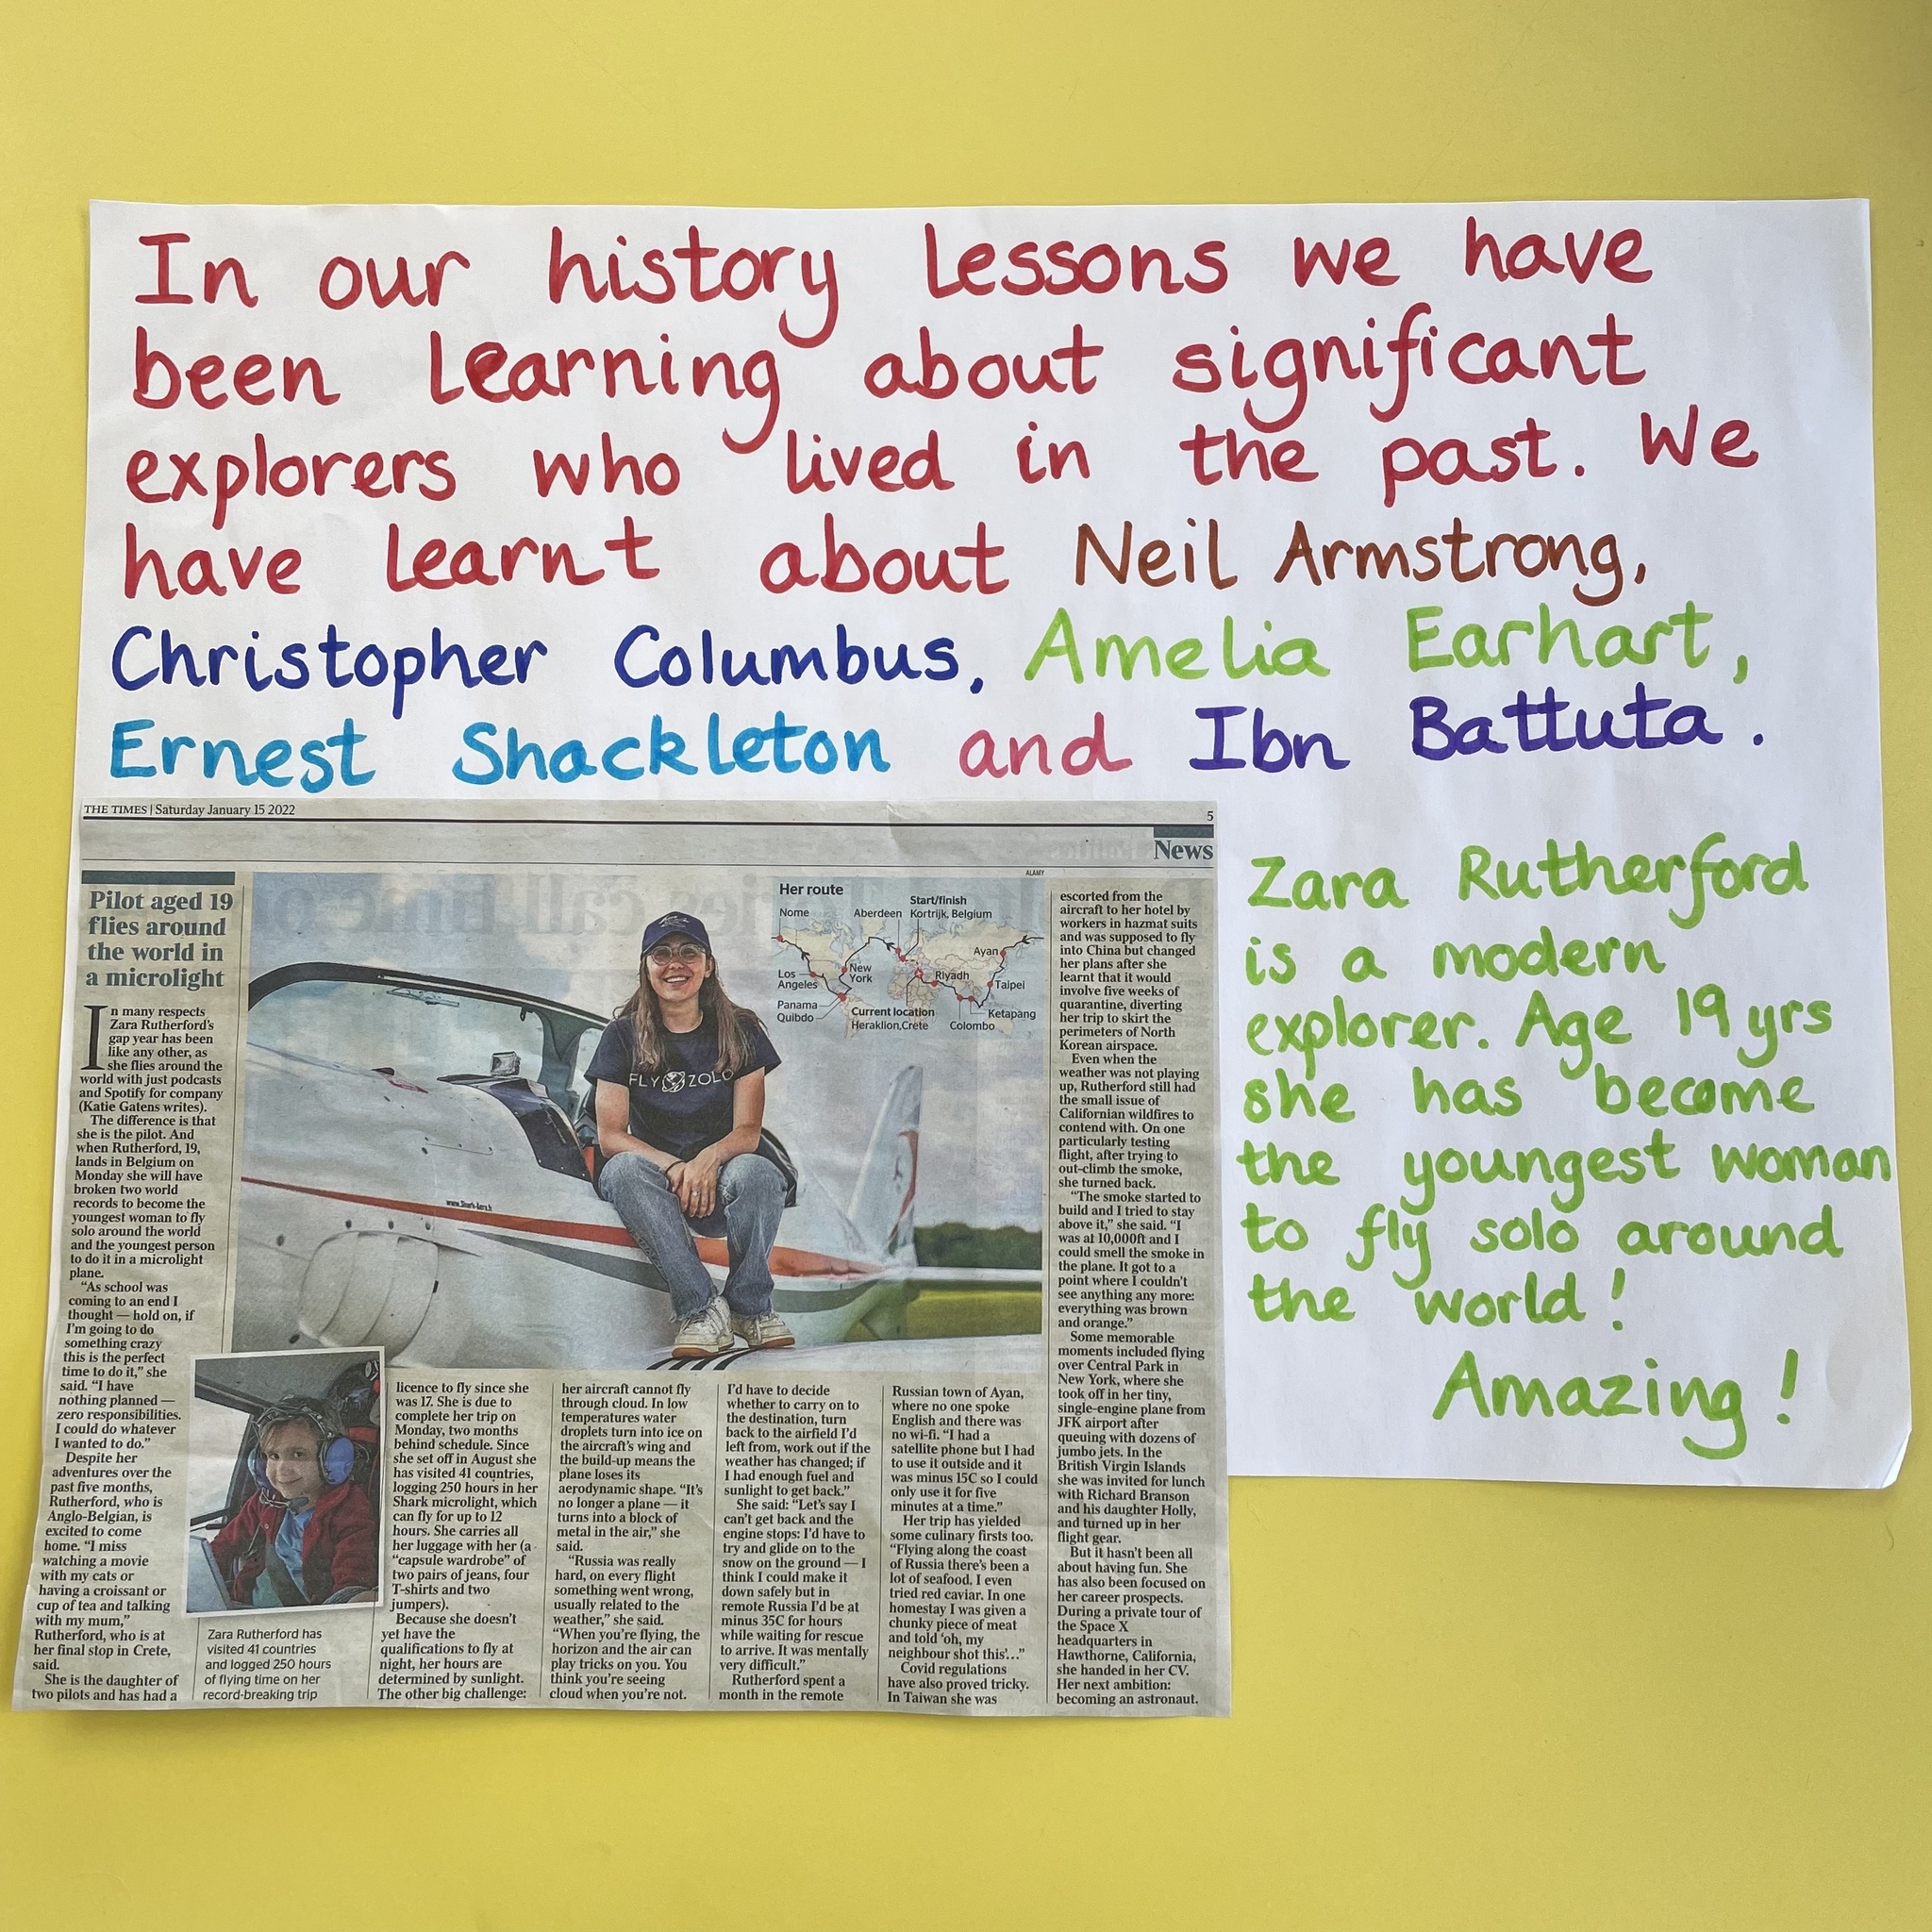 In our history lessons we have
been learning about significant
explorers who lived in the past. We
have learnt about Neil Armstrong,
Christopher Columbus, Amelia Earhart,
Ernest Shackleton and Ibn Battuta.
THE TIMES | Saturday January 15 2022
5
News
ALAMY
Pilot aged 19
flies around
the world in
a microlight
In many respects
Zara Rutherford's
gap year has been
like any other, as
she flies around the
world with just podcasts
and Spotify for company
(Katie Gatens writes).
The difference is that
she is the pilot. And
when Rutherford, 19,
lands in Belgium on
Monday she will have
broken two world
records to become the
youngest woman to fly
solo around the world
and the youngest person
to do it in a microlight
plane.
"As school was
coming to an end I
thought — hold on, if
I'm going to do
something crazy
this is the perfect
time to do it," she
said. "I have
nothing planned —
zero responsibilities.
I could do whatever
I wanted to do."
Despite her
adventures over the
past five months,
Rutherford, who is
Anglo-Belgian, is
excited to come
home. "I miss
watching a movie
with my cats or
having a croissant or
cup of tea and talking
with my mum,"
Rutherford, who is at
her final stop in Crete,
said.
She is the daughter of
two pilots and has had a
Her route
Nome
Aberdeen
Start/finish
Kortrijk, Belgium
Ayan
Los
Angeles
New
York
Riyadh
Taipei
Panama
Quibdo
Current location
Heraklion,Crete
Colombo
Ketapang
FLY ZOLO
www.Shark-Aero.h
Zara Rutherford has
visited 41 countries
and logged 250 hours
of flying time on her
record-breaking trip
licence to fly since she
was 17. She is due to
complete her trip on
Monday, two months
behind schedule. Since
she set off in August she
has visited 41 countries,
logging 250 hours in her
Shark microlight, which
can fly for up to 12
hours. She carries all
her luggage with her (a
"capsule wardrobe" of
two pairs of jeans, four
T-shirts and two
jumpers).
Because she doesn't
yet have the
qualifications to fly at
night, her hours are
determined by sunlight.
The other big challenge:
her aircraft cannot fly
through cloud. In low
temperatures water
droplets turn into ice on
the aircraft's wing and
the build-up means the
plane loses its
aerodynamic shape. "It's
no longer a plane — it
turns into a block of
metal in the air," she
said.
"Russia was really
hard, on every flight
something went wrong,
usually related to the
weather," she said.
"When you're flying, the
horizon and the air can
play tricks on you. You
think you're seeing
cloud when you're not.
I'd have to decide
whether to carry on to
the destination, turn
back to the airfield I'd
left from, work out if the
weather has changed; if
I had enough fuel and
sunlight to get back."
She said: "Let's say I
can't get back and the
engine stops: I'd have to
try and glide on to the
snow on the ground — I
think I could make it
down safely but in
remote Russia I'd be at
minus 35C for hours
while waiting for rescue
to arrive. It was mentally
very difficult."
Rutherford spent a
month in the remote
Russian town of Ayan,
where no one spoke
English and there was
no wi-fi. "I had a
satellite phone but I had
to use it outside and it
was minus 15C so I could
only use it for five
minutes at a time."
Her trip has yielded
some culinary firsts too.
"Flying along the coast
of Russia there's been a
lot of seafood. I even
tried red caviar. In one
homestay I was given a
chunky piece of meat
and told 'oh, my
neighbour shot this'..."
Covid regulations
have also proved tricky.
In Taiwan she was
escorted from the
aircraft to her hotel by
workers in hazmat suits
and was supposed to fly
into China but changed
her plans after she
learnt that it would
involve five weeks of
quarantine, diverting
her trip to skirt the
perimeters of North
Korean airspace.
Even when the
weather was not playing
up, Rutherford still had
the small issue of
Californian wildfires to
contend with. On one
particularly testing
flight, after trying to
out-climb the smoke,
she turned back.
"The smoke started to
build and I tried to stay
above it," she said. "I
was at 10,000ft and I
could smell the smoke in
the plane. It got to a
point where I couldn't
see anything any more:
everything was brown
and orange."
Some memorable
moments included flying
over Central Park in
New York, where she
took off in her tiny,
single-engine plane from
JFK airport after
queuing with dozens of
jumbo jets. In the
British Virgin Islands
she was invited for lunch
with Richard Branson
and his daughter Holly,
and turned up in her
flight gear.
But it hasn't been all
about having fun. She
has also been focused on
her career prospects.
During a private tour of
the Space X
headquarters in
Hawthorne, California,
she handed in her CV.
Her next ambition:
becoming an astronaut.
Zara Rutherford
is a modern
explorer. Age 19 yrs
she has become
the youngest woman
to fly solo around
the world!
Amazing!